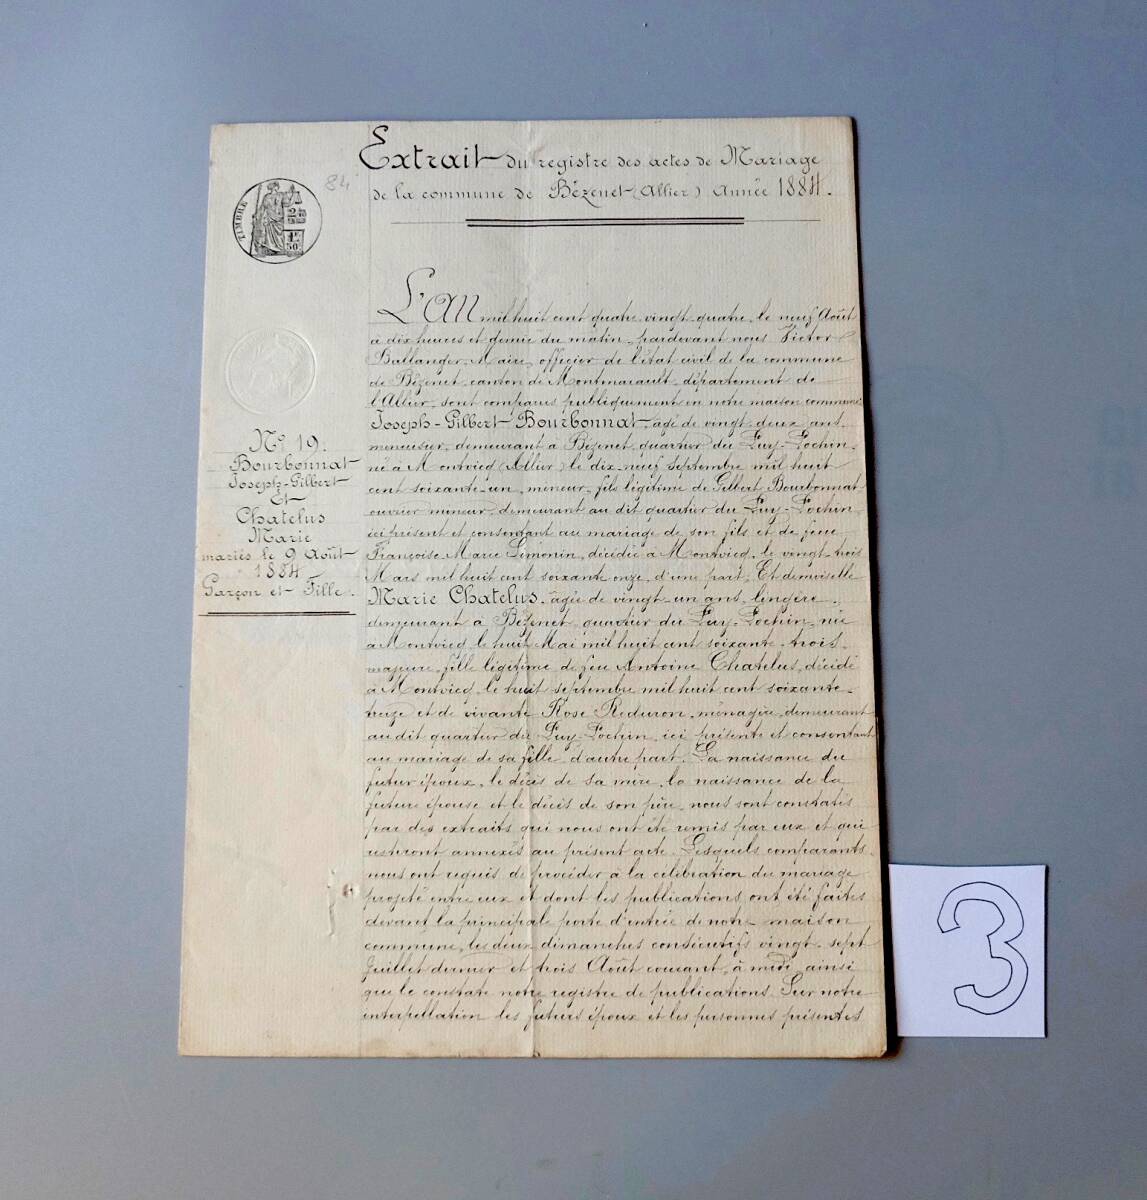 Extrait du registre des actes de Mariage
de la commune de Bézenet (Allier) Année 1884.
84
TIMBRE
N° 19.
Bourbonnat
Joseph-Gilbert
Et
Chatelus
Marie
mariés le 9 Août
1884
Garçon et Fille.
L'an mil huit cent quatre vingt quatre, le neuf Août
à dix heures et demie du matin, pardevant nous Victor
Ballanger, Maire, officier de l'état civil de la commune
de Bézenet, canton de Montmarault, département de
l'Allier, sont comparus publiquement en notre maison commune
Joseph-Gilbert Bourbonnat, âgé de vingt-deux ans,
menuisier, demeurant à Bézenet, quartier du Puy-Pochin,
né à Montvicq (Allier) le dix-neuf Septembre mil huit
cent soixante-un, mineur, fils légitime de Gilbert Bourbonnat
ouvrier mineur, demeurant au dit quartier du Puy-Pochin,
ici présent et consentant au mariage de son fils et de feue
Françoise Marie Simonin, décédée à Montvicq, le vingt-trois
Mars mil huit cent soixante onze, d'une part, Et demoiselle
Marie Chatelus, âgée de vingt-un ans, lingère,
demeurant à Bézenet, quartier du Puy-Pochin, née
à Montvicq le huit Mai mil huit cent soixante-trois,
majeure, fille légitime de feu Antoine Chatelus, décédé
à Montvicq, le huit septembre mil huit cent soixante-
treize et de vivante Rose Reduron, ménagère, demeurant
au dit quartier du Puy-Pochin, ici présente et consentant
au mariage de sa fille d'autre part. La naissance du
futur époux, le décès de sa mère, la naissance de la
future épouse et le décès de son père, nous sont constatés
par des extraits qui nous ont été remis par eux et qui
resteront annexés au présent acte. Lesquels comparants
nous ont requis de procéder à la célébration du mariage
projeté entre eux et dont les publications ont été faites
devant la principale porte d'entrée de notre maison
commune, les deux dimanches consécutifs vingt-sept
Juillet dernier et trois Août courant, à midi, ainsi
que le constate notre registre de publications. Sur notre
interpellation les futurs époux et les personnes présentes
3